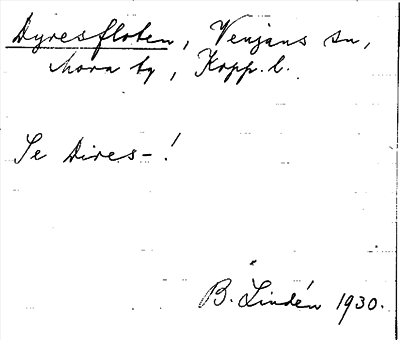 Dyresfloten, Venjans sn,
Mora tg, Kopp. l.
Se Dires-!
B. Lindén 1930.